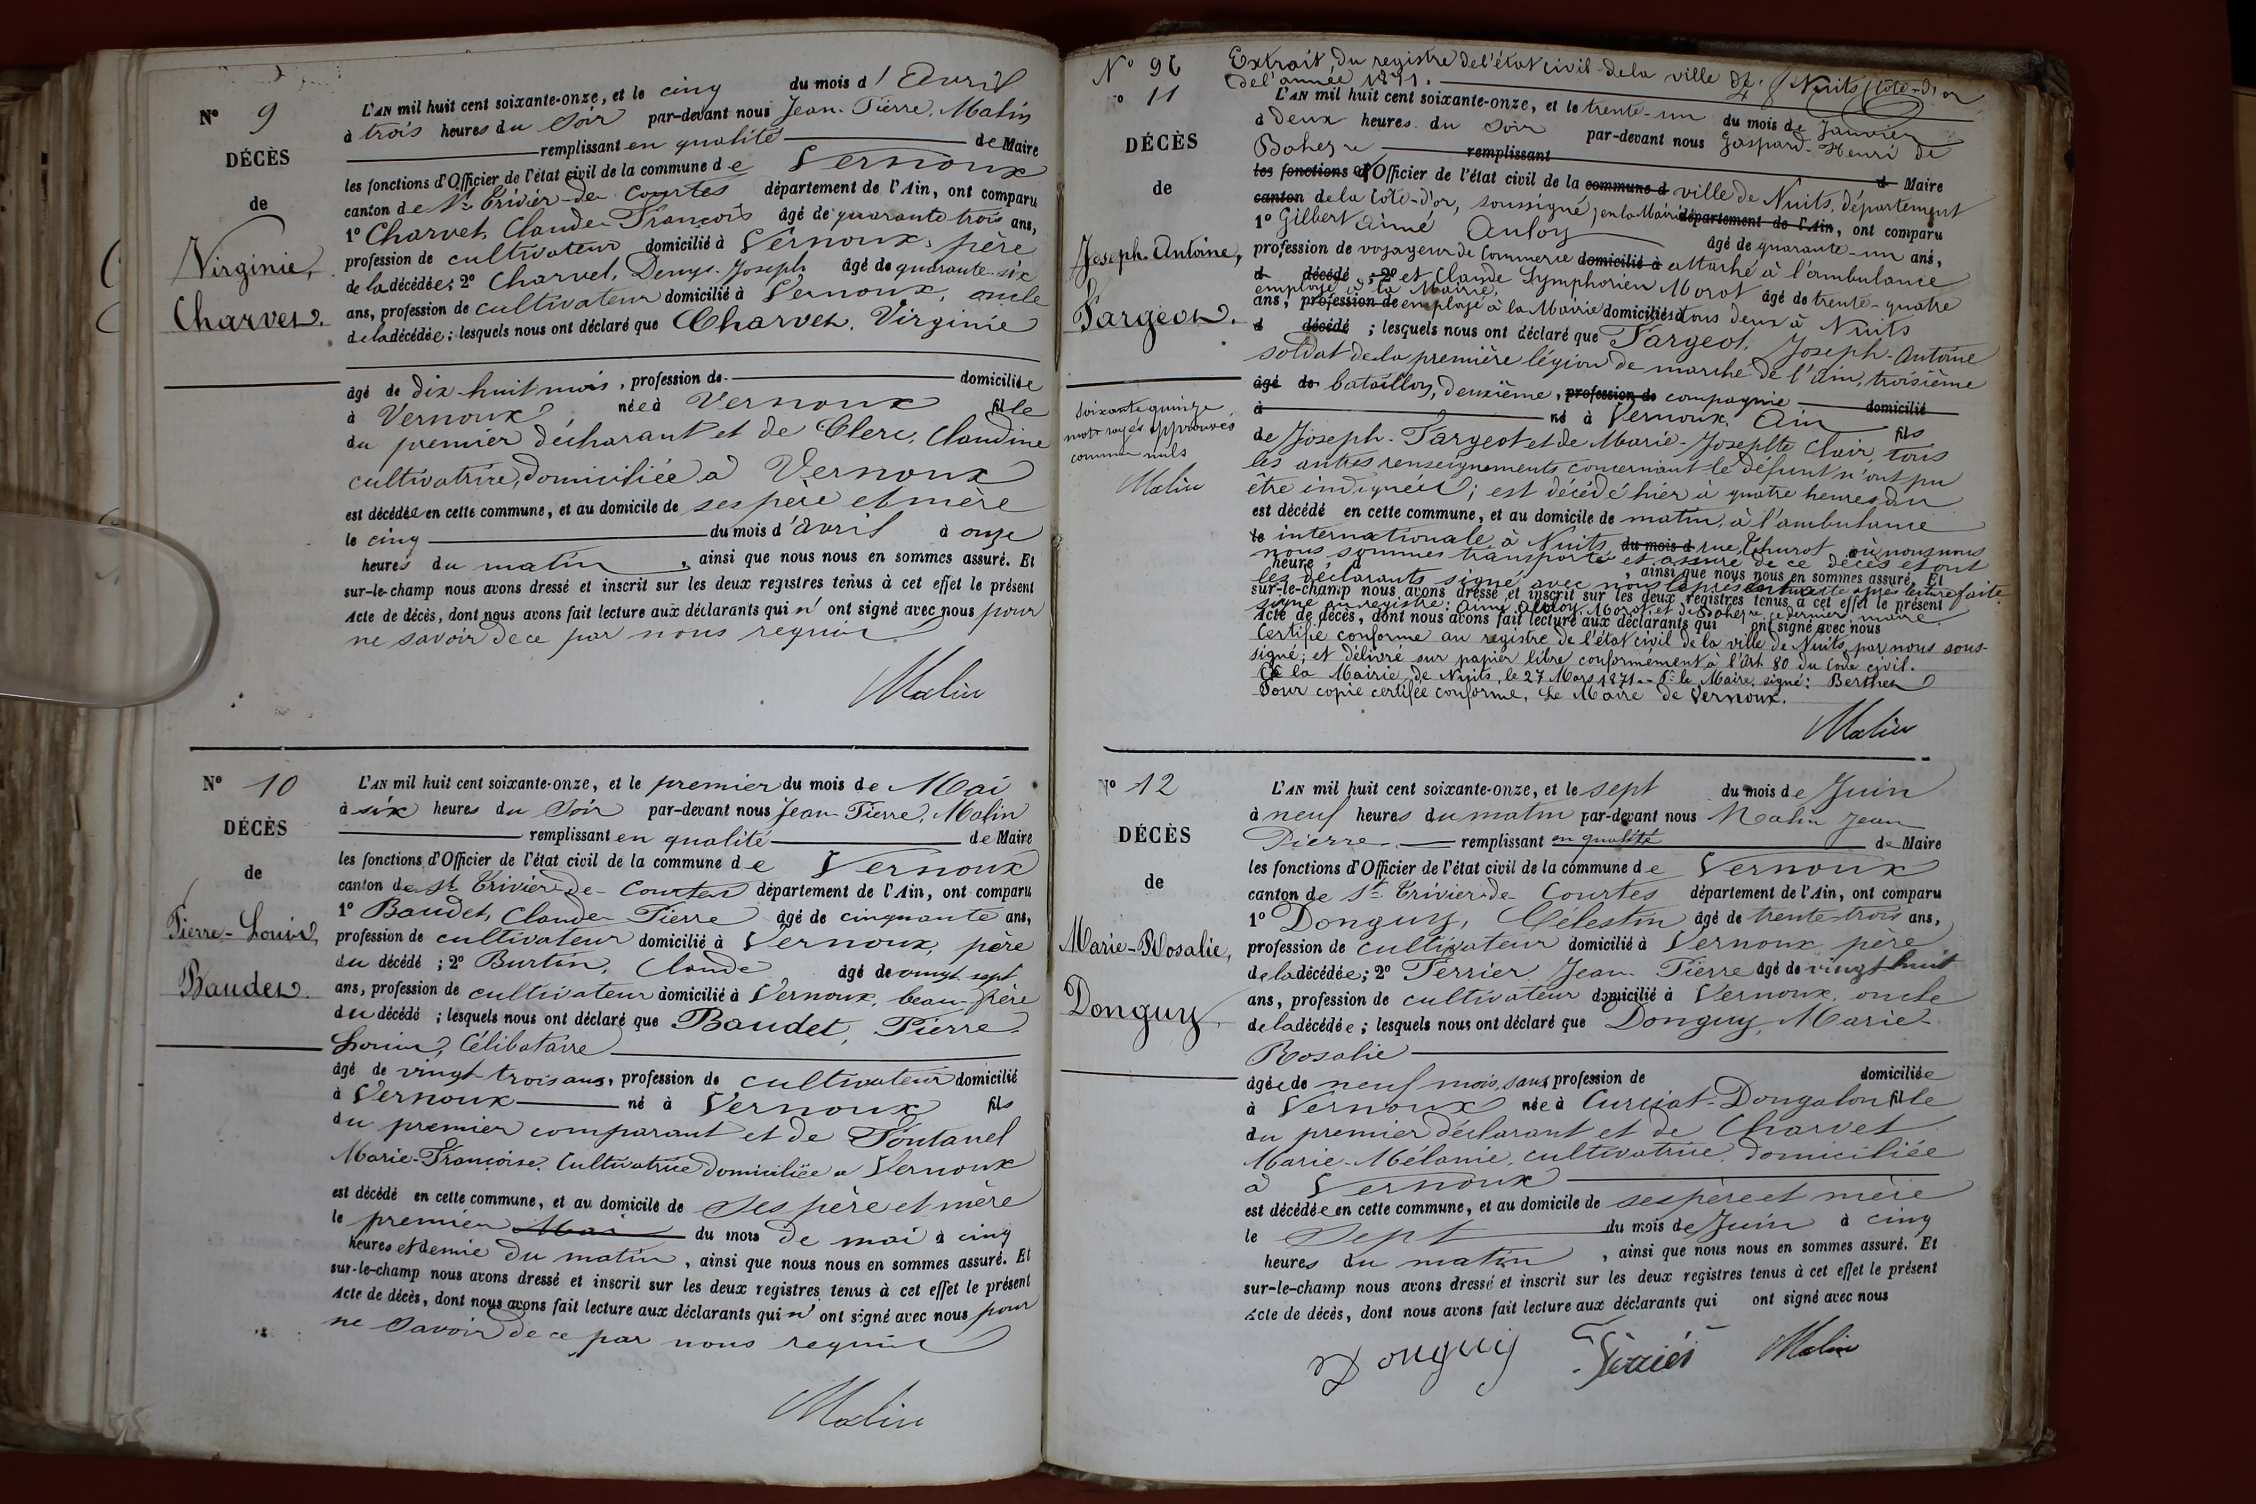 N° 9
DÉCÈS
de
Virginie,
Charvet.
L'AN mil huit cent soixante-onze, et le cinq du mois d'Avril
à trois heures du Soir par-devant nous Jean-Pierre, Malin
remplissant en qualité de Maire
les fonctions d'Officier de l'état civil de la commune de Vernoux
canton de St Trivier-de-Courtes département de l'Ain, ont comparu
1° Charvet, Claude François âgé de quarante trois ans,
profession de cultivateur domicilié à Vernoux, père
de la décédée; 2° Charvet, Denys-Joseph, âgé de quarante-six
ans, profession de cultivateur domicilié à Vernoux, oncle
de la décédée; lesquels nous ont déclaré que Charvet, Virginie
âgé de dix-huit mois, profession de domiciliée
à Vernoux née à Vernoux fille
du premier déclarant et de Clerc, Claudine
cultivatrice, domiciliée à Vernoux
est décédée en cette commune, et au domicile de ses père et mère
le cinq du mois d'avril à onze
heures du matin, ainsi que nous nous en sommes assuré. Et
sur-le-champ nous avons dressé et inscrit sur les deux registres tenus à cet effet le présent
Acte de décès, dont nous avons fait lecture aux déclarants qui n'ont signé avec nous pour
ne savoir de ce par nous requis
Malin
N° 10
DÉCÈS
de
Pierre-Louis,
Baudet.
L'AN mil huit cent soixante-onze, et le premier du mois de Mai
à six heures du Soir par-devant nous Jean-Pierre, Malin
remplissant en qualité de Maire
les fonctions d'Officier de l'état civil de la commune de Vernoux
canton de St Trivier-de-Courtes département de l'Ain, ont comparu
1° Baudet, Claude-Pierre âgé de cinquante ans,
profession de cultivateur domicilié à Vernoux, père
du décédé; 2° Burtin, Claude âgé de vingt sept
ans, profession de cultivateur domicilié à Vernoux, beau-frère
du décédé; lesquels nous ont déclaré que Baudet, Pierre-
Louis, Célibataire
âgé de vingt trois ans, profession de cultivateur domicilié
à Vernoux né à Vernoux fils
du premier comparant et de Pontanel
Marie-Françoise, Cultivatrice domiciliée à Vernoux
est décédé en cette commune, et au domicile de Ses père et mère
le premier Mai du mois de mai à cinq
heures et demie du matin, ainsi que nous nous en sommes assuré. Et
sur-le-champ nous avons dressé et inscrit sur les deux registres tenus à cet effet le présent
Acte de décès, dont nous avons fait lecture aux déclarants qui n'ont signé avec nous pour
ne savoir de ce par nous requis
Malin
N° 96 Extrait du registre de l'état civil de la ville de Nuits (Côte-d'or
de l'année 1871.
N° 11
DÉCÈS
de
Joseph-Antoine,
Pargeot.
soixante quinze
mots rayés approuvés
comme nuls
Malin
L'AN mil huit cent soixante-onze, et le trente-un du mois de Janvier
à deux heures du Soir par-devant nous Gaspard-Henri de
Bahezre remplissant d Maire
les fonctions d'Officier de l'état civil de la commune d ville de Nuits, département
canton de la Côte-d'or, soussigné, en la Mairie département de l'Ain, ont comparu
1° Gilbert Aimé Auloy âgé de quarante-un ans,
profession de voyageur de Commerce domicilié à attaché à l'ambulance
d décédé; 2° et Claude Symphorien Morot âgé de trente-quatre
employé à la Mairie,
ans, profession de employé à la Mairie domiciliés tous deux à Nuits
d décédé; lesquels nous ont déclaré que Pargeot, Joseph-Antoine
soldat de la première légion de marche de l'Ain, troisième
âgé de bataillon, deuxième, profession de compagnie domicilié
à né à Vernoux, Ain fils
de Joseph-Pargeot et de Marie-Josephte Clair, tous
les autres renseignements concernant le défunt n'ont pu
être indiqués; est décédé hier à quatre heures du
est décédé en cette commune, et au domicile de matin, à l'ambulance
le internationale à Nuits du mois d rue Thurot où nous nous
nous sommes transporté et assuré de ce décès et ont
heure d, ainsi que nous nous en sommes assuré. Et
les déclarants signé avec nous le présent acte après lecture faite.
sur-le-champ nous avons dressé et inscrit sur les deux registres tenus à cet effet le présent
signé au registre: Aimé Auloy, Morot et de Bahezre ce dernier maire.
Acte de décès, dont nous avons fait lecture aux déclarants qui ont signé avec nous
Certifié conforme au registre de l'état civil de la ville de Nuits, par nous sous-
signé; et délivré sur papier libre conformément à l'Art 80 du Code civil.
à la Mairie de Nuits, le 27 Mars 1871.- Pr le Maire, signé: Berthet
Pour copie certifiée conforme, Le Maire de Vernoux.
Malin
N° 12
DÉCÈS
de
Marie-Rosalie,
Donguy
L'AN mil huit cent soixante-onze, et le sept du mois de Juin
à neuf heures du matin par-devant nous Malin Jean
Pierre remplissant en qualité de Maire
les fonctions d'Officier de l'état civil de la commune de Vernoux
canton de St Trivier-de-Courtes département de l'Ain, ont comparu
1° Donguy, Célestin âgé de trente-trois ans,
profession de cultivateur domicilié à Vernoux père
de la décédée; 2° Perrier Jean-Pierre âgé de vingt huit
ans, profession de cultivateur domicilié à Vernoux, oncle
de la décédée; lesquels nous ont déclaré que Donguy, Marie-
Rosalie
âgée de neuf mois, sans profession de domiciliée
à Vernoux née à Curciat-Dongalon fille
du premier déclarant et de Charvet
Marie-Mélanie, cultivatrice, domiciliée
à Vernoux
est décédée en cette commune, et au domicile de ses père et mère
le Sept du mois de Juin à cinq
heures du matin, ainsi que nous nous en sommes assuré. Et
sur-le-champ nous avons dressé et inscrit sur les deux registres tenus à cet effet le présent
Acte de décès, dont nous avons fait lecture aux déclarants qui ont signé avec nous
Donguy Perrier Malin